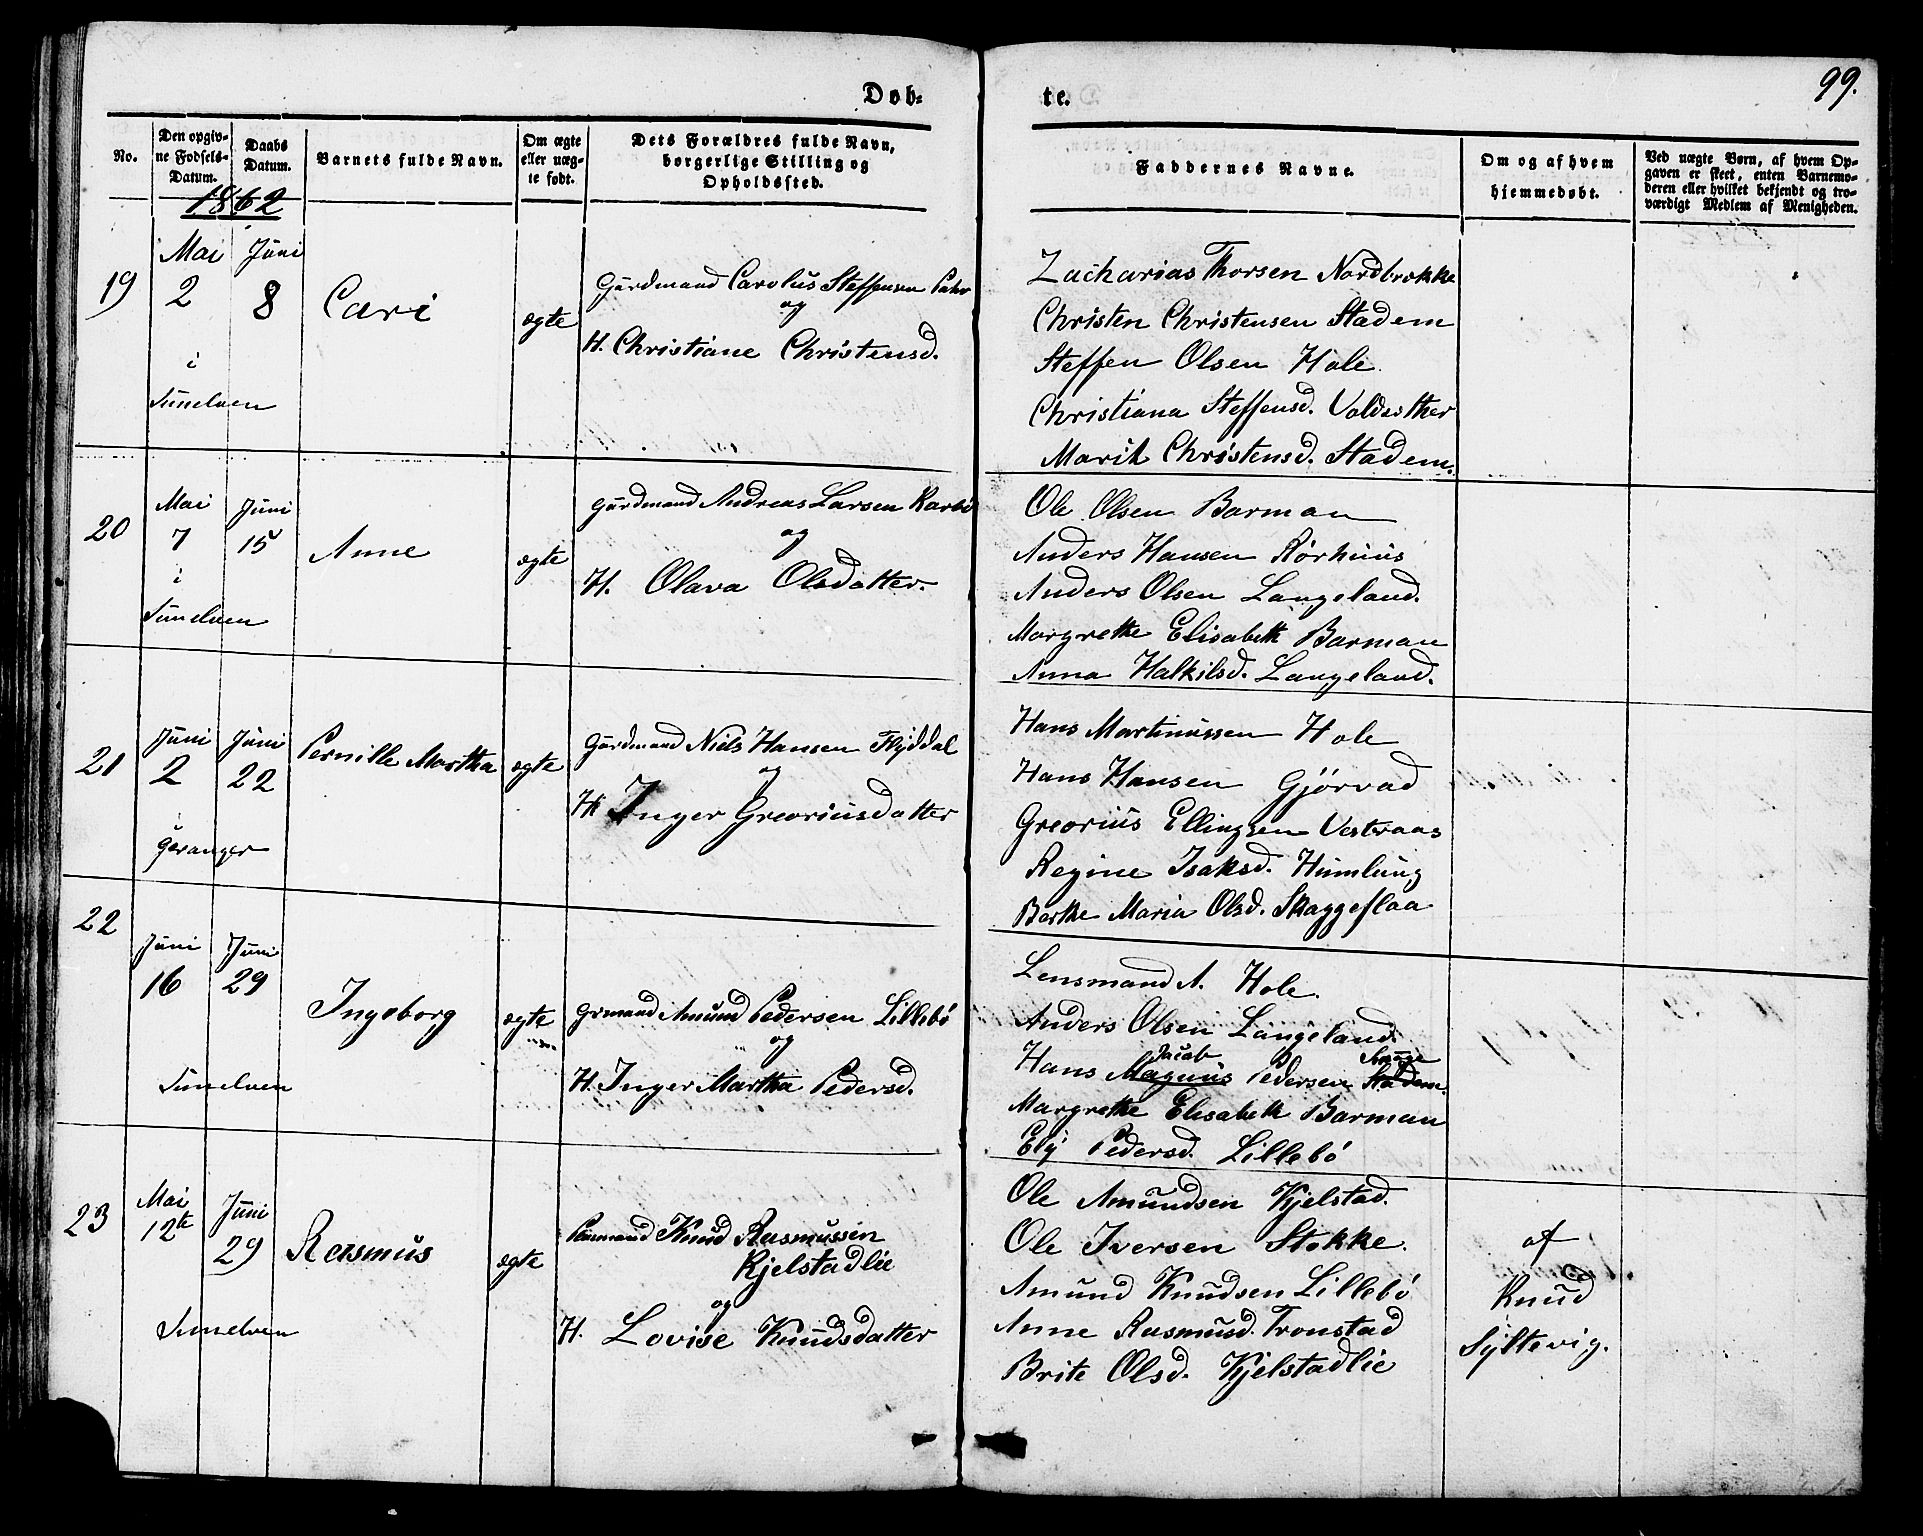 Døb-
te.
99.
No.
Den opgiv-
ne Fødsels-
Datum.
Daabs
Datum.
Barnets fulde Navn.
Om ægte
eller uæg-
te født.
Dets Forældres fulde Navn,
borgerlige Stilling og
Opholdssted.
Faddernes Navne.
Om og af hvem
hjemmedøbt.
Ved uægte Børn, af hvem Op-
gaven er skeet, enten Barnemo-
deren eller hvilket bekjendt og tro-
værdigt Medlem af Menigheden.
1862
19
Mai
2
i
Sunelven
Juni
8
Cari
ægte
Gårdmand Carolus Steffensen
og
H. Christiane Christensd.
Zacharias Thorsen Nordbrekke
Christen Christensen Stadem
Steffen Olsen Hole
Christiana Steffensd.
Marit Christensd. Stadem.
20
Mai
7
i
Sunelven
Juni
15
Anne
ægte
Gårdmand Andreas Larsen
og
H. Olava Olsdatter.
Ole Olsen Barman
Anders Hansen Rørhuus
Anders Olsen Langeland.
Margrethe Elisabeth Barman
Anna Halkilsd. Langeland.
21
Juni
2
i
Geranger
Juni
22
Pernille Martha
ægte
Gårdmand Niels Hansen Flyddal
og
H. Inger Greoriusdatter
Hans Martinussen Hole
Hans Hansen Gjørvad
Greorius Ellingsen Vestraas
Regine Isaksd. Humlung
Berthe Maria Olsd. Skaggeflaa
22
Juni
16
Sunelven
Juni
29
Ingeborg
ægte
Grmand Amund Pedersen Lillebø
og
H. Inger Martha Pedersd.
Lensmand A. Hole.
Anders Olsen Langeland.
Jacob
Hans Magnus Pedersen Stadem
Margrethe Elisabeth Barman
Ely Pedersd. Lillebø
23
Mai
12te
Sunelven
Juni
29
Rasmus
ægte
Knud Rasmussen
Kjelstadlie
og
H. Lovise Knudsdatter
Ole Amundsen Kjelstad.
Ole Iversen Stokke.
Amund Knudsen Lillebø
Anne Rasmusd. Tronstad
Brite Olsd. Kjelstadlie
af
Knud
Syltevig.